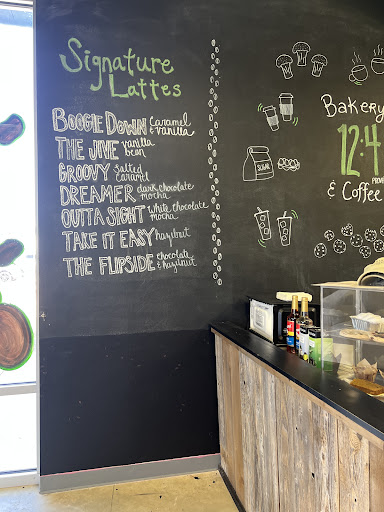 Signature
Lattes
BOOGIE DOWN caramel & vanilla
THE JIVE vanilla bean
GROOVY salted caramel
DREAMER dark chocolate mocha
OUTTA SIGHT white chocolate mocha
TAKE IT EASY hazelnut
THE FLIPSIDE chocolate & hazelnut
SUGAR
Bakery
12:4
& Coffee